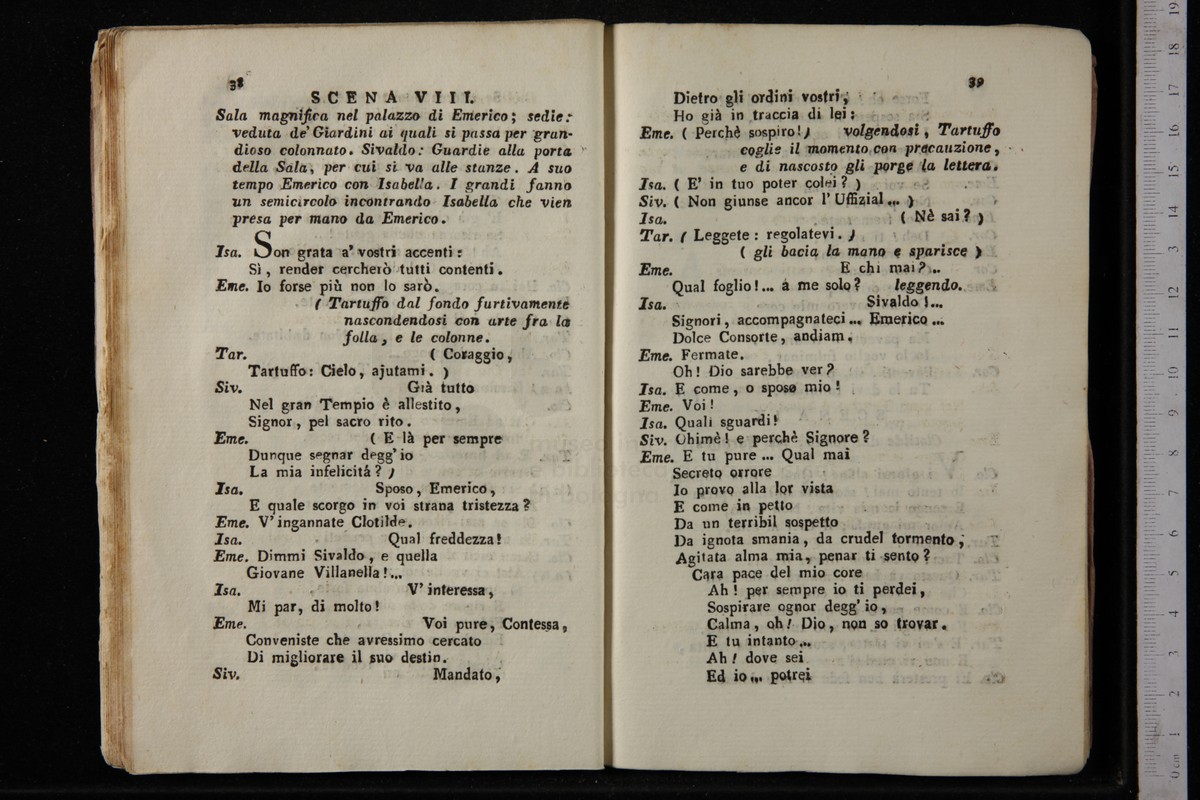 38
SCENA VIII.
Sala magnifica nel palazzo di Emerico; sedie:
veduta de' Giardini ai quali si passa per gran-
dioso colonnato. Sivaldo: Guardie alla porta
della Sala, per cui si va alle stanze. A suo
tempo Emerico con Isabella. I grandi fanno
un semicircolo incontrando Isabella che vien
presa per mano da Emerico.
Isa. Son grata a' vostri accenti:
Sì, render cercherò tutti contenti.
Eme. Io forse più non lo sarò.
( Tartuffo dal fondo furtivamente
nascondendosi con arte fra la
folla, e le colonne.
Tar. ( Coraggio,
Tartuffo: Cielo, ajutami. )
Siv. Già tutto
Nel gran Tempio è allestito,
Signor, pel sacro rito.
Eme. ( E là per sempre
Dunque segnar degg' io
La mia infelicità? )
Isa. Sposo, Emerico,
E quale scorgo in voi strana tristezza?
Eme. V' ingannate Clotilde.
Isa. Qual freddezza!
Eme. Dimmi Sivaldo, e quella
Giovane Villanella!...
Isa. V' interessa,
Mi par, di molto!
Eme. Voi pure, Contessa,
Conveniste che avressimo cercato
Di migliorare il suo destin.
Siv. Mandato,
39
Dietro gli ordini vostri,
Ho già in traccia di lei:
Eme. ( Perchè sospiro!) volgendosi, Tartuffo
coglie il momento con precauzione,
e di nascosto gli porge la lettera.
Isa. ( E' in tuo poter colei? )
Siv. ( Non giunse ancor l' Uffizial... )
Isa. ( Nè sai? )
Tar. ( Leggete: regolatevi. )
( gli bacia la mano e sparisce )
Eme. E chi mai?..
Qual foglio!... a me solo? leggendo.
Isa. Sivaldo!...
Signori, accompagnateci... Emerico...
Dolce Consorte, andiam.
Eme. Fermate.
Oh! Dio sarebbe ver?
Isa. E come, o sposo mio!
Eme. Voi!
Isa. Quali sguardi!
Siv. Ohimè! e perchè Signore?
Eme. E tu pure... Qual mai
Secreto orrore
Io provo alla lor vista
E come in petto
Da un terribil sospetto
Da ignota smania, da crudel tormento,
Agitata alma mia, penar ti sento?
Cara pace del mio core
Ah! per sempre io ti perdei,
Sospirare ognor degg' io,
Calma, oh! Dio, non so trovar.
E tu intanto...
Ah! dove sei
Ed io... potrei